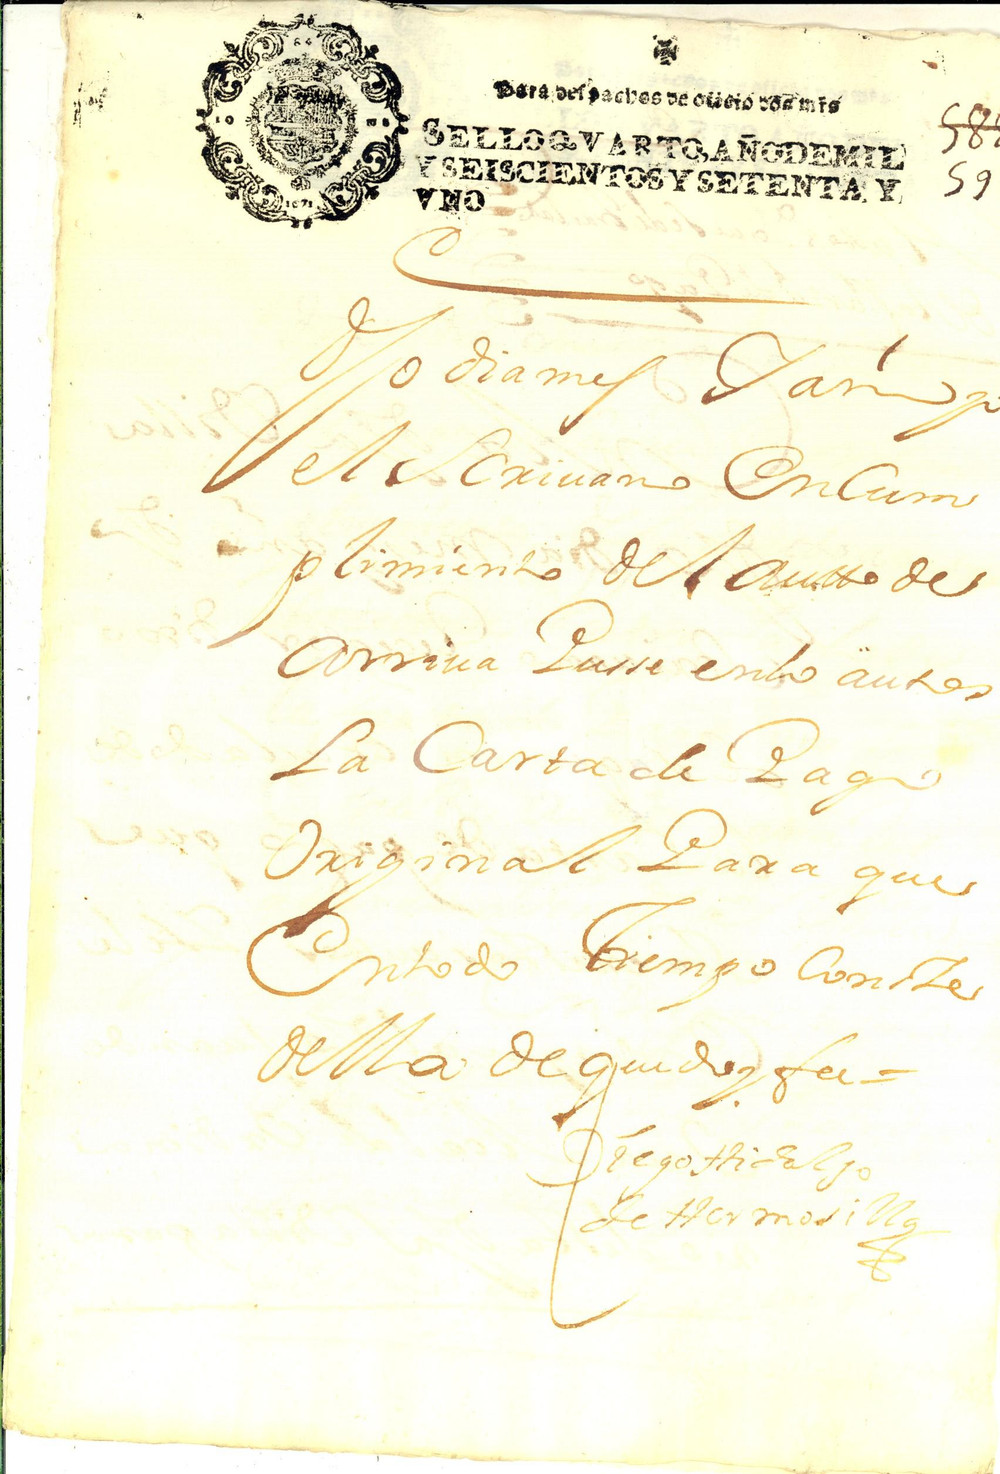 Para despachos de oficio dos mrs
SELLO QVARTO, AÑO DE MIL
Y SEISCIENTOS Y SETENTA Y
VNO
1671
58
59
dho dia mes Y año yo
el sCriuano En Cum
plimiento del auto de
arriua Puse en los autos
La Carta de Pago
Original Para que
En todo Tiempo Conste
della de que doy fee =
Diego Hidalgo
de Hermosilla